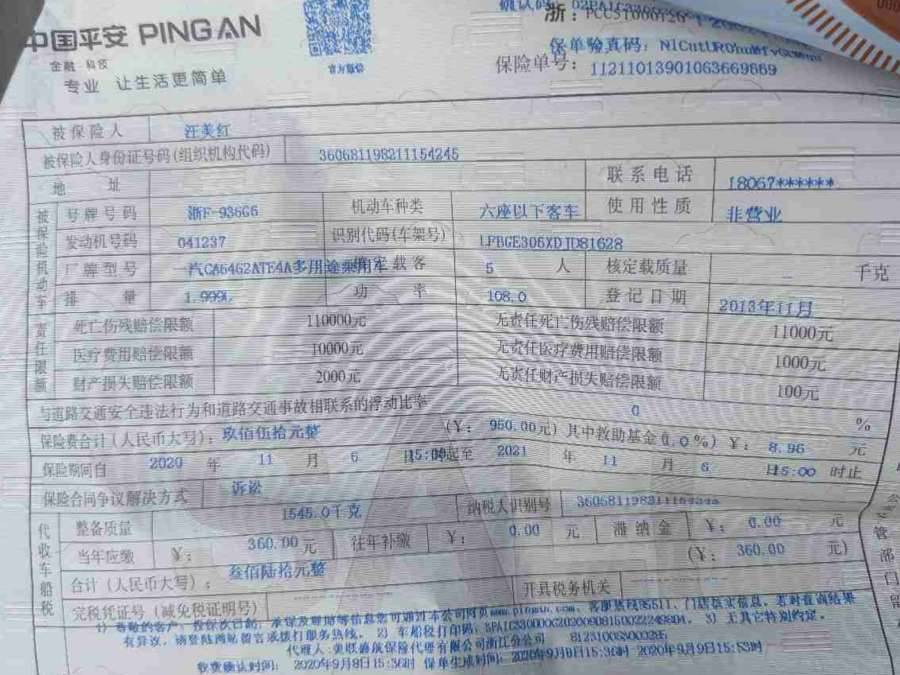 中国平安 PING AN
金融·科技
专业 让生活更简单
官方微信
浙:
保单验真码:
保险单号: 11211013901063669869
被保险人 汪美红
被保险人身份证号码(组织机构代码) 360681198211154245
地 址 联系电话 18067******
被保险机动车
号牌号码 浙F-936G5 机动车种类 六座以下客车 使用性质 非营业
发动机号码 041237 识别代码(车架号) LFBGE306XDJD81628
厂牌型号 一汽CA6462ATE4A多用途乘用车 核定载客 5 人 核定载质量 千克
排 量 1.999L 功 率 108.0 登记日期 2013年11月
责任限额
死亡伤残赔偿限额 110000元 无责任死亡伤残赔偿限额 11000元
医疗费用赔偿限额 10000元 无责任医疗费用赔偿限额 1000元
财产损失赔偿限额 2000元 无责任财产损失赔偿限额 100元
与道路交通安全违法行为和道路交通事故相联系的浮动比率 0 %
保险费合计(人民币大写): 玖佰伍拾元整 (¥: 950.00元) 其中救助基金(1.0%) ¥: 8.96 元
保险期间自 2020 年 11 月 6 日15:00时起至 2021 年 11 月 6 日15:00 时止
保险合同争议解决方式 诉讼
代收车船税
整备质量 1545.0千克 纳税人识别号
当年应缴 ¥: 360.00 元 往年补缴 ¥: 0.00 元 滞纳金 ¥: 0.00 元
合计(人民币大写): 叁佰陆拾元整 (¥: 360.00 元)
完税凭证号(减免税证明号) 开具税务机关
1) 尊敬的客户:投保次日起,承保及理赔等信息您可通过本公司网页www.pingan.com、客服热线95511、门店核实信息。若对查询结果
有异议,请登陆网站留言或拨打服务热线。 2) 车船税打印码: 3) 无其它特别约定。
保险代理有限公司浙江分公司
收费确认时间: 2020年9月8日15:36时 保单生成时间: 2020年9月8日15:36时 2020年9月9日15:53时
管部门留